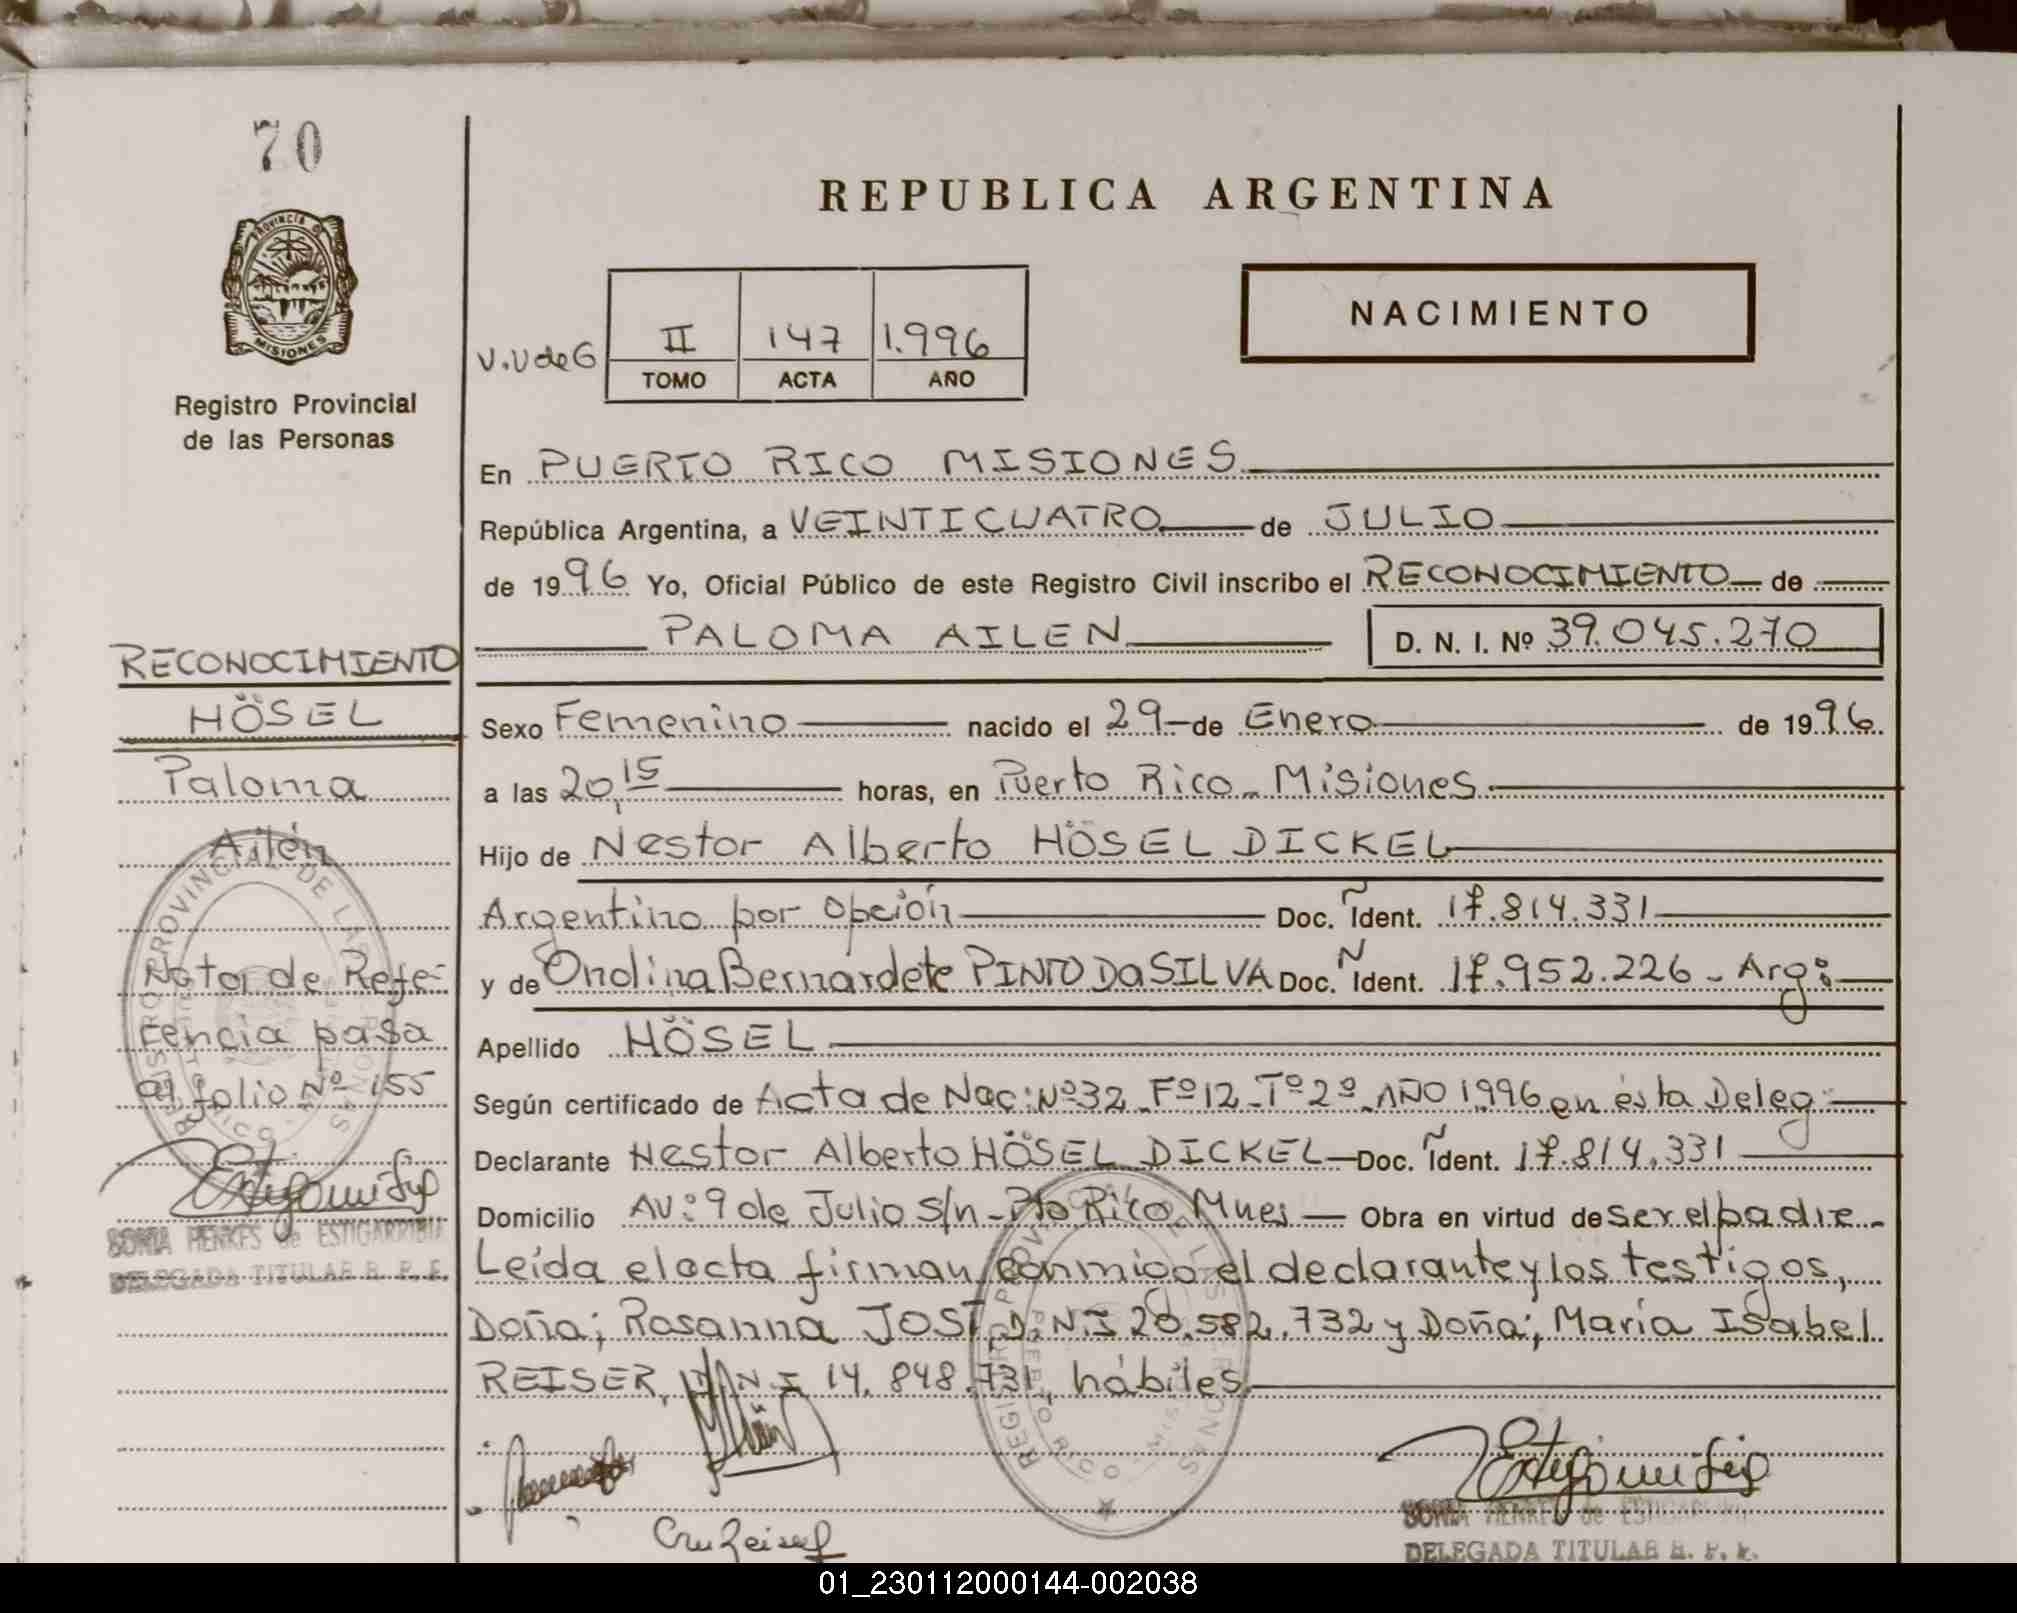 70
REPUBLICA ARGENTINA
PROVINCIA DE
MISIONES
Registro Provincial
de las Personas
NACIMIENTO
V.V de G
II 147 1.996
TOMO ACTA AÑO
En PUERTO RICO MISIONES
República Argentina, a VEINTICUATRO de JULIO
de 1996 Yo, Oficial Público de este Registro Civil inscribo el RECONOCIMIENTO de
PALOMA AILEN D. N. I. Nº 39.045.270
Sexo Femenino nacido el 29 de Enero de 1996
a las 20,15 horas, en Puerto Rico - Misiones
Hijo de Nestor Alberto HÖSEL DICKEL
Argentino por opción Doc. Ident. 17.814.331
y de Ondina Bernardete PINTO DA SILVA Doc. Ident. 17.952.226 - Arg:
Apellido HÖSEL
Según certificado de Acta de Nac: Nº 32 - Fº 12 - Tº 2º - AÑO 1996 en ésta Deleg
Declarante Nestor Alberto HÖSEL DICKEL Doc. Ident. 17.814.331
Domicilio AV: 9 de Julio S/n - Pto Rico Mnes Obra en virtud de ser el padre -
Leída el acta firman conmigo el declarante y los testigos,
Doña; Rosanna JOST D.N.I 20.582.732 y Doña; María Isabel
REISER, D.N.I 14.848.731, hábiles
RECONOCIMIENTO
HÖSEL
Paloma
Ailén
Nota de Refe-
rencia pasa
al folio Nº 155
SONIA HENKES de ESTIGARRIBIA
DELEGADA TITULAR R. P. P.
REGISTRO PROVINCIAL DE LAS PERSONAS
PUERTO RICO - MISIONES
SONIA HENKES de ESTIGARRIBIA
DELEGADA TITULAR R. P. P.
01_230112000144-002038